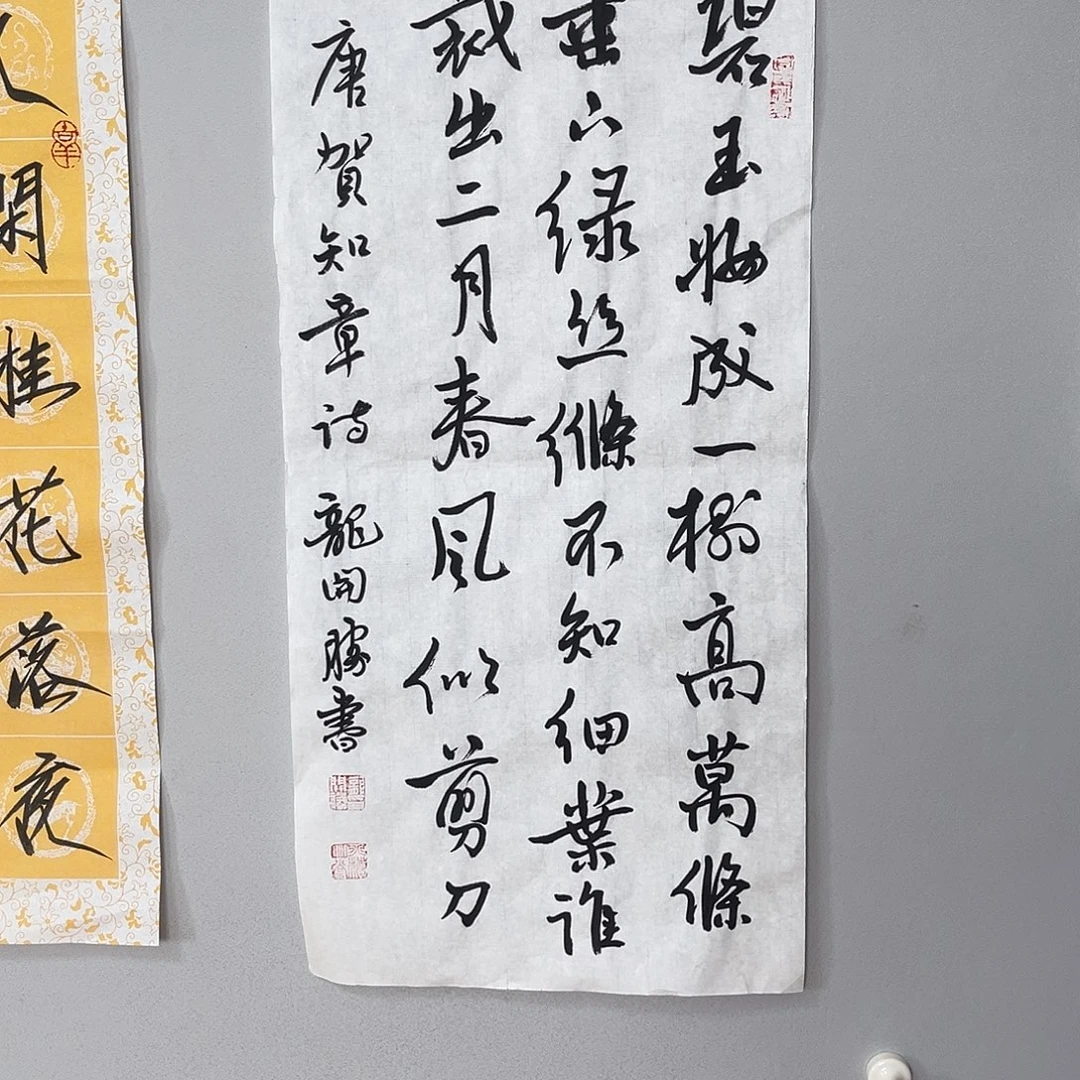 碧玉妝成一樹高萬條
垂下绿丝縧不知细葉誰
裁出二月春风似剪刀
唐賀知章詩 龍開勝書
人閑桂花落夜